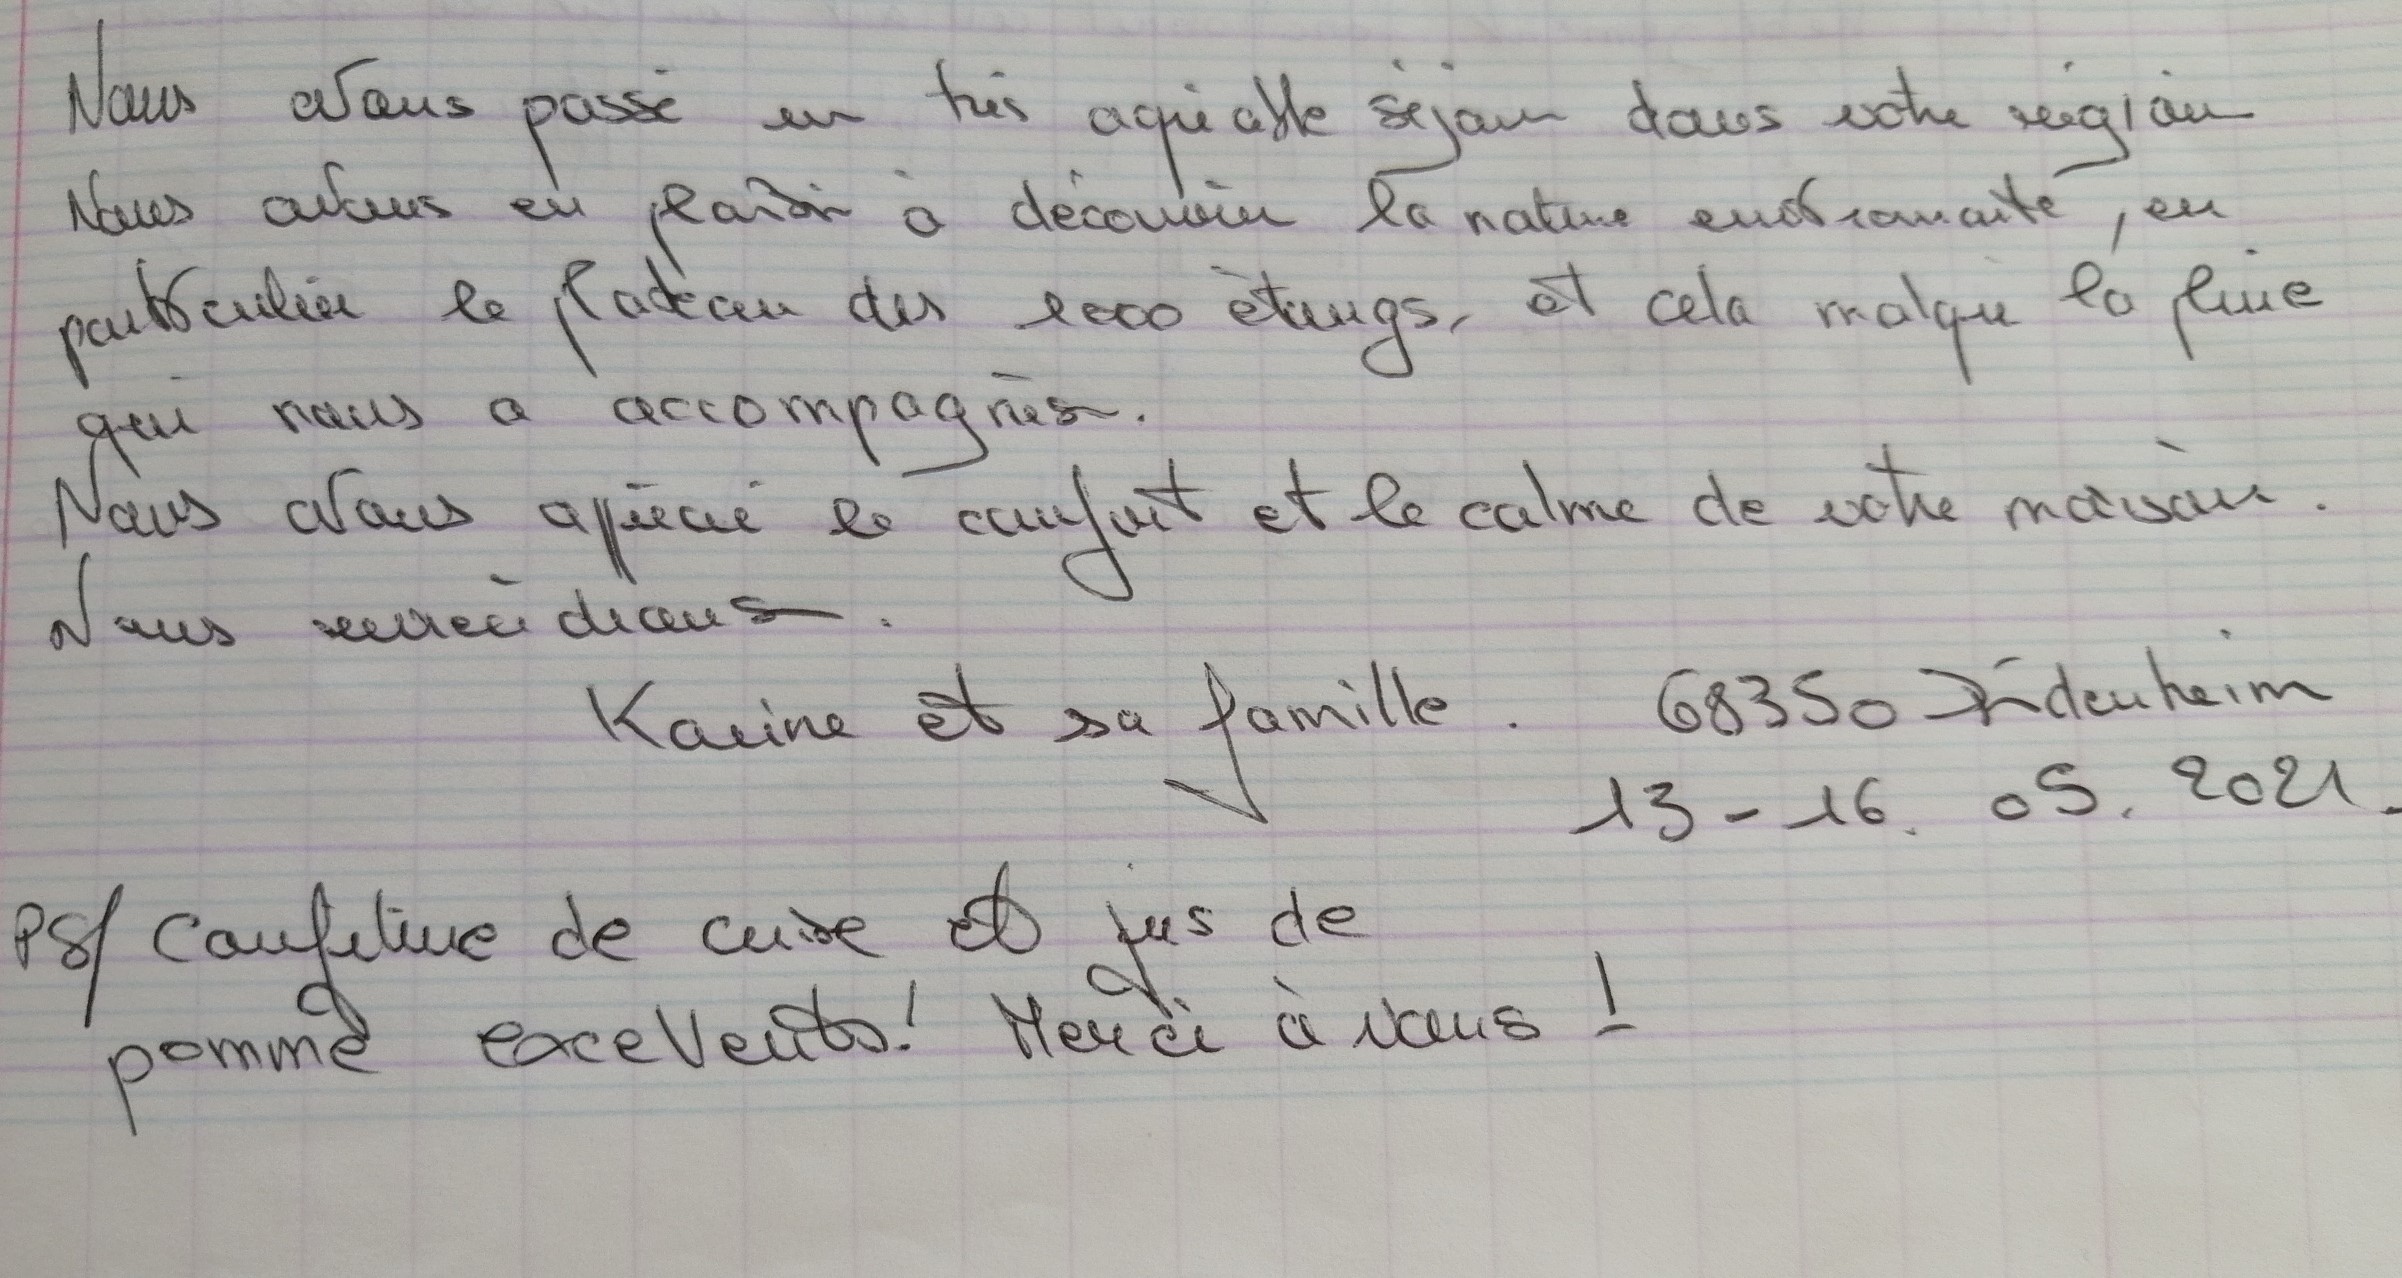 Nous avons passé un très agréable séjour dans votre région
Nous avons eu plaisir à découvrir la nature environnante, en
particulier le plateau des 1000 étangs, et cela malgré la pluie
qui nous a accompagnés.
Nous avons apprécié le confort et le calme de votre maison.
Nous reviendrons.
Karine et sa famille. 68350 Didenheim
13-16. 05. 2021.
PS/ Confiture de cerise et jus de
pomme excellents! Merci à vous!